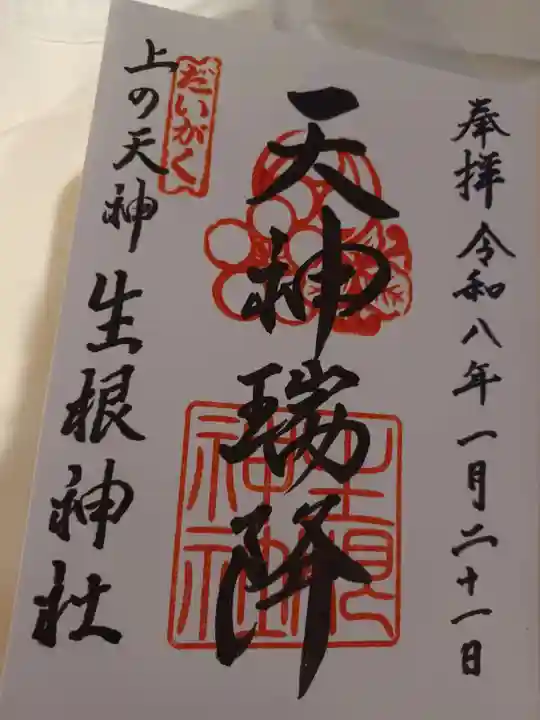 奉拝 令和八年一月二十一日
天神瑞降
生根神社
だいがく
上の天神 生根神社